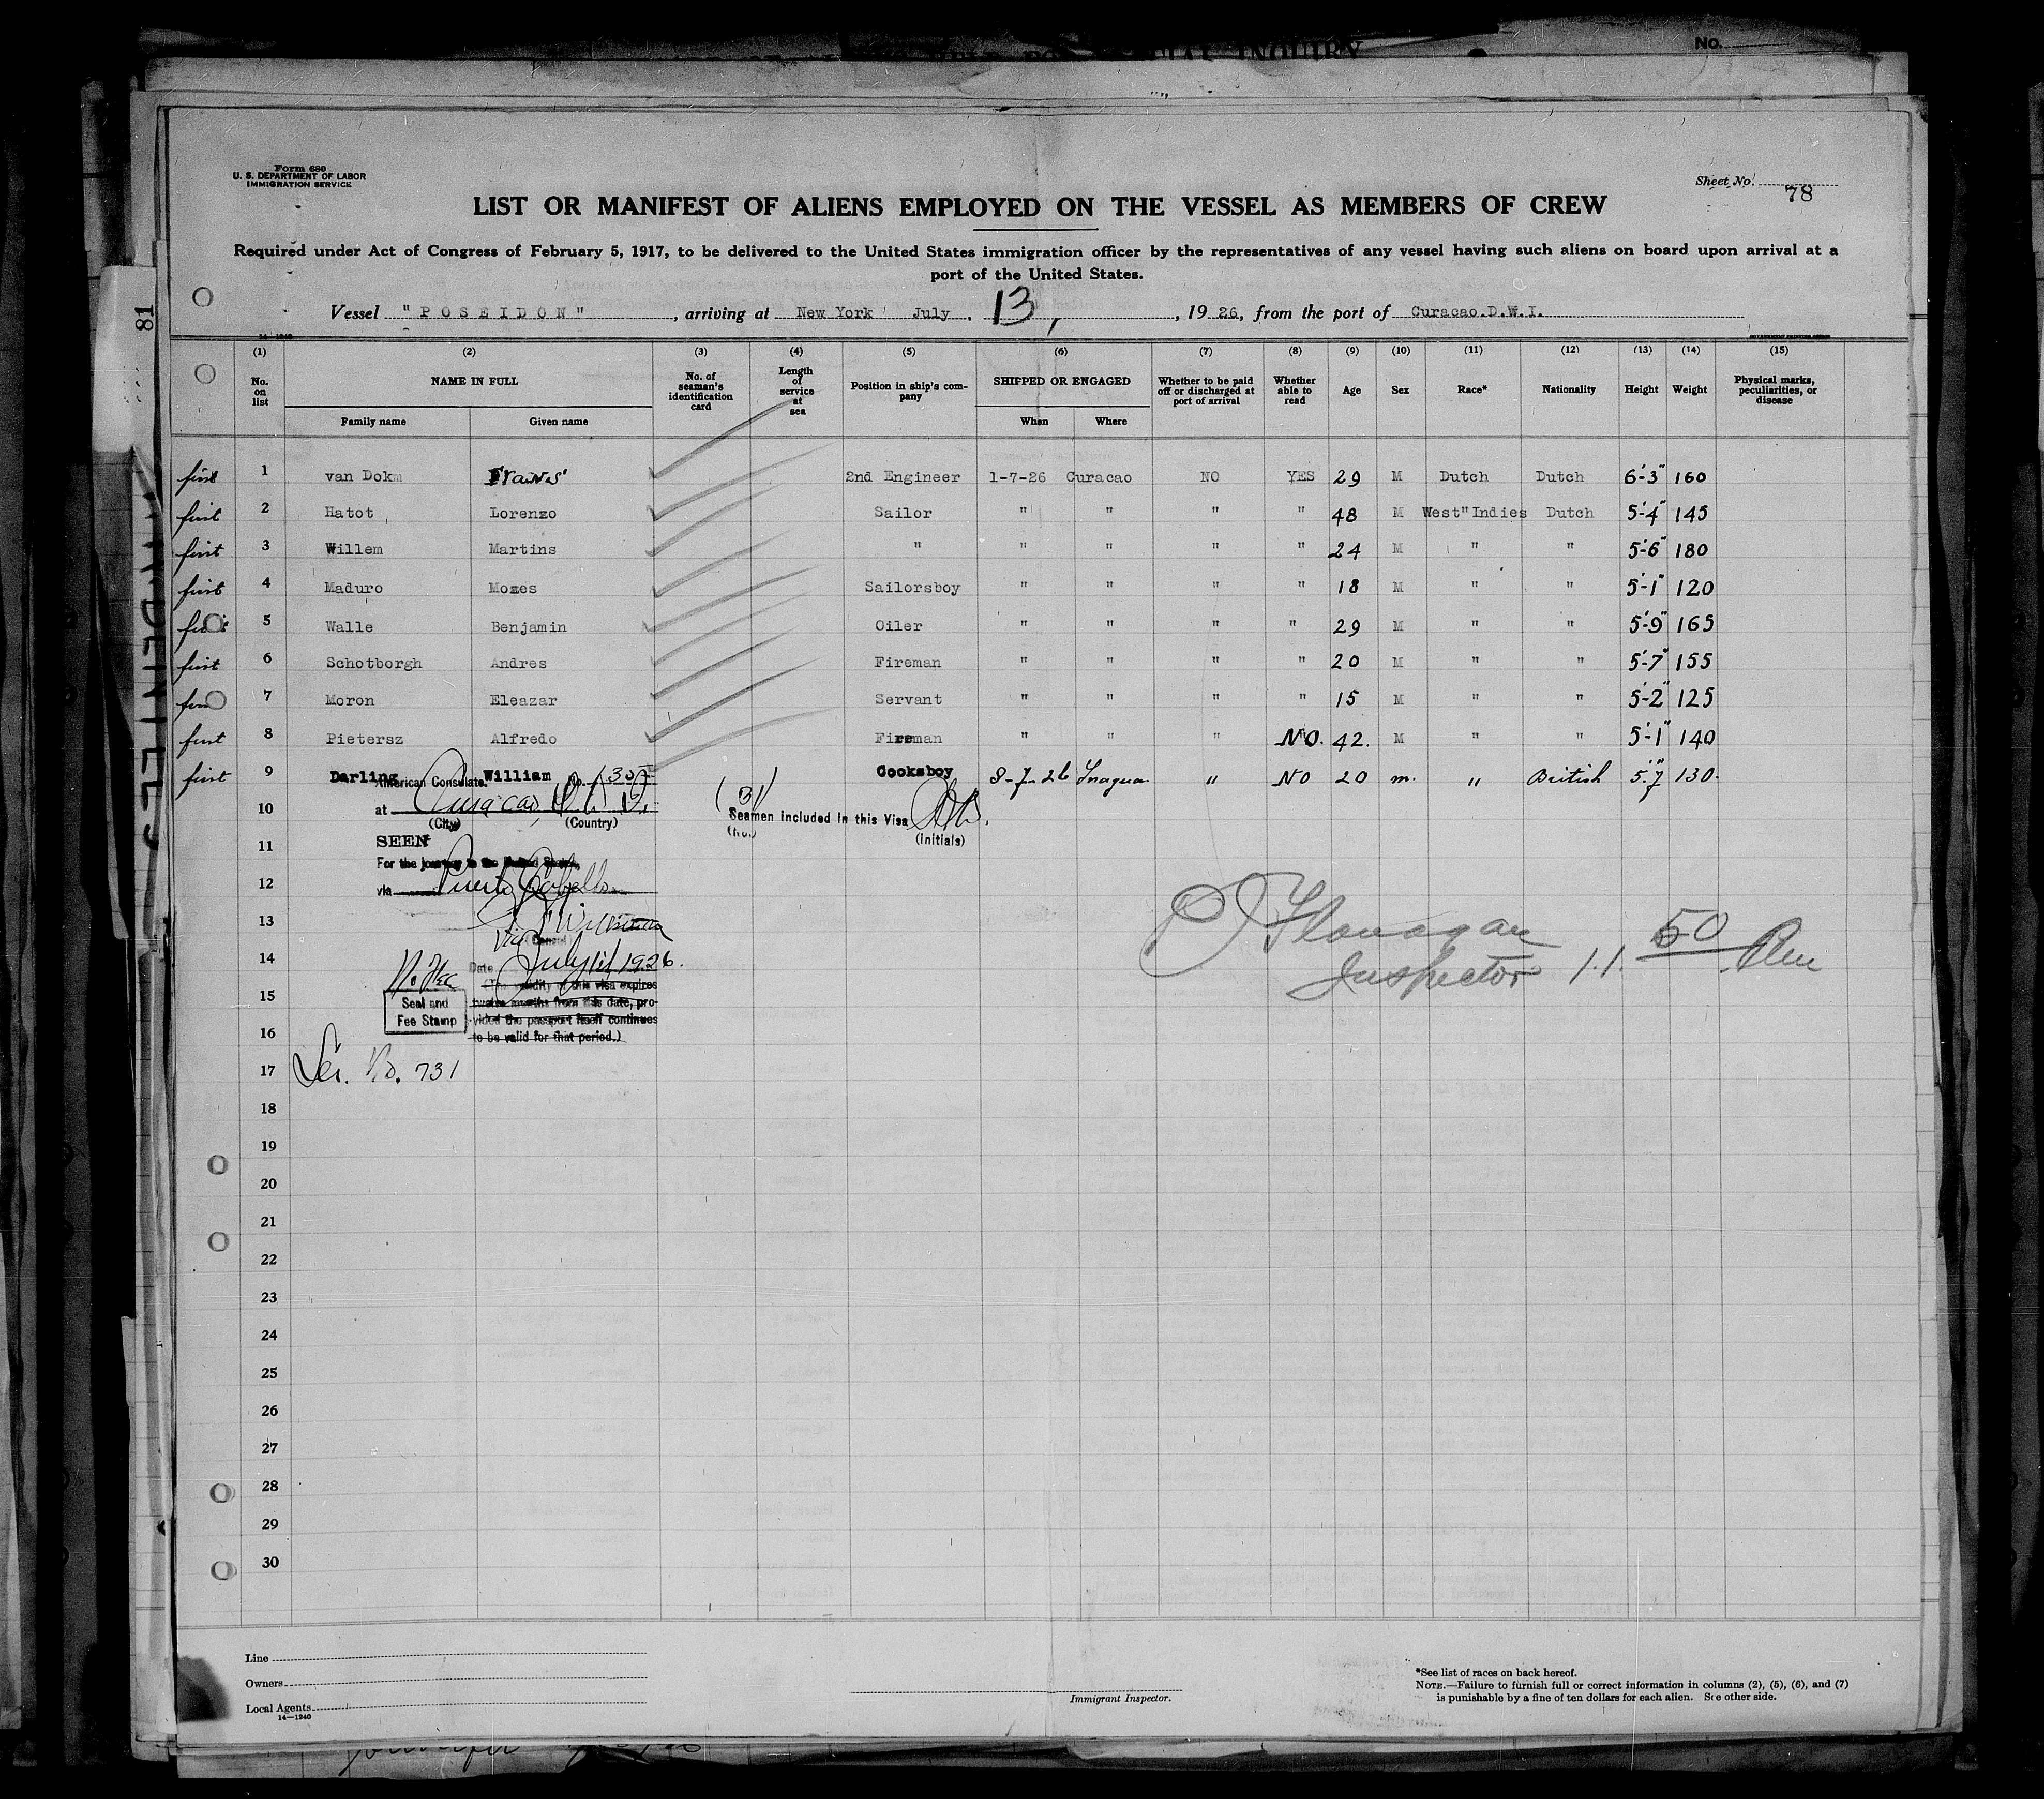 No.
Form 680
U. S. DEPARTMENT OF LABOR
IMMIGRATION SERVICE
Sheet No. 78
LIST OR MANIFEST OF ALIENS EMPLOYED ON THE VESSEL AS MEMBERS OF CREW
Required under Act of Congress of February 5, 1917, to be delivered to the United States immigration officer by the representatives of any vessel having such aliens on board upon arrival at a
port of the United States.
Vessel "POSEIDON", arriving at New York July 13, 1926, from the port of Curacao.D.W.I.
81
(1) (2) (3) (4) (5) (6) (7) (8) (9) (10) (11) (12) (13) (14) (15)
No. on list NAME IN FULL No. of seaman's identification card Length of service at sea Position in ship's company SHIPPED OR ENGAGED Whether to be paid off or discharged at port of arrival Whether able to read Age Sex Race* Nationality Height Weight Physical marks, peculiarities, or disease
Family name Given name When Where
first 1 van Dokm Frans 2nd Engineer 1-7-26 Curacao NO YES 29 M Dutch Dutch 6'-3" 160
first 2 Hatot Lorenzo Sailor " " " " 48 M West"Indies Dutch 5'-4" 145
first 3 Willem Martins " " " " " 24 M " " 5'-6" 180
first 4 Maduro Mozes Sailorsboy " " " " 18 M " " 5'-1" 120
first 5 Walle Benjamin Oiler " " " " 29 M " " 5'-9" 165
first 6 Schotborgh Andres Fireman " " " " 20 M " " 5'-7" 155
first 7 Moron Eleazar Servant " " " " 15 M " " 5'-2" 125
first 8 Pietersz Alfredo Fireman " " " NO. 42. M " " 5'-1" 140
first 9 Darling William Cooksboy 8-7-26 Inagua. " NO 20 m. " British 5'.7" 130.
American Consulate No.
10 at Curacao D.W.I.
(City) (Country)
(31) Seamen included in this Visa
(No.) (initials)
11 SEEN
For the journey to the United States,
12 via Puerto Cabello
13
Vice Consul
14 Date July 1st 1926.
No Fee
Seal and
Fee Stamp
15 (The validity of this visa expires
twelve months from this date, pro-
vided the passport itself continues
16 to be valid for that period.)
17 Ser. No. 731
Flanagan
Inspector
50
18
19
20
21
22
23
24
25
26
27
28
29
30
Line
Owners
Local Agents
14—1240
Immigrant Inspector.
*See list of races on back hereof.
NOTE.—Failure to furnish full or correct information in columns (2), (5), (6), and (7)
is punishable by a fine of ten dollars for each alien. See other side.